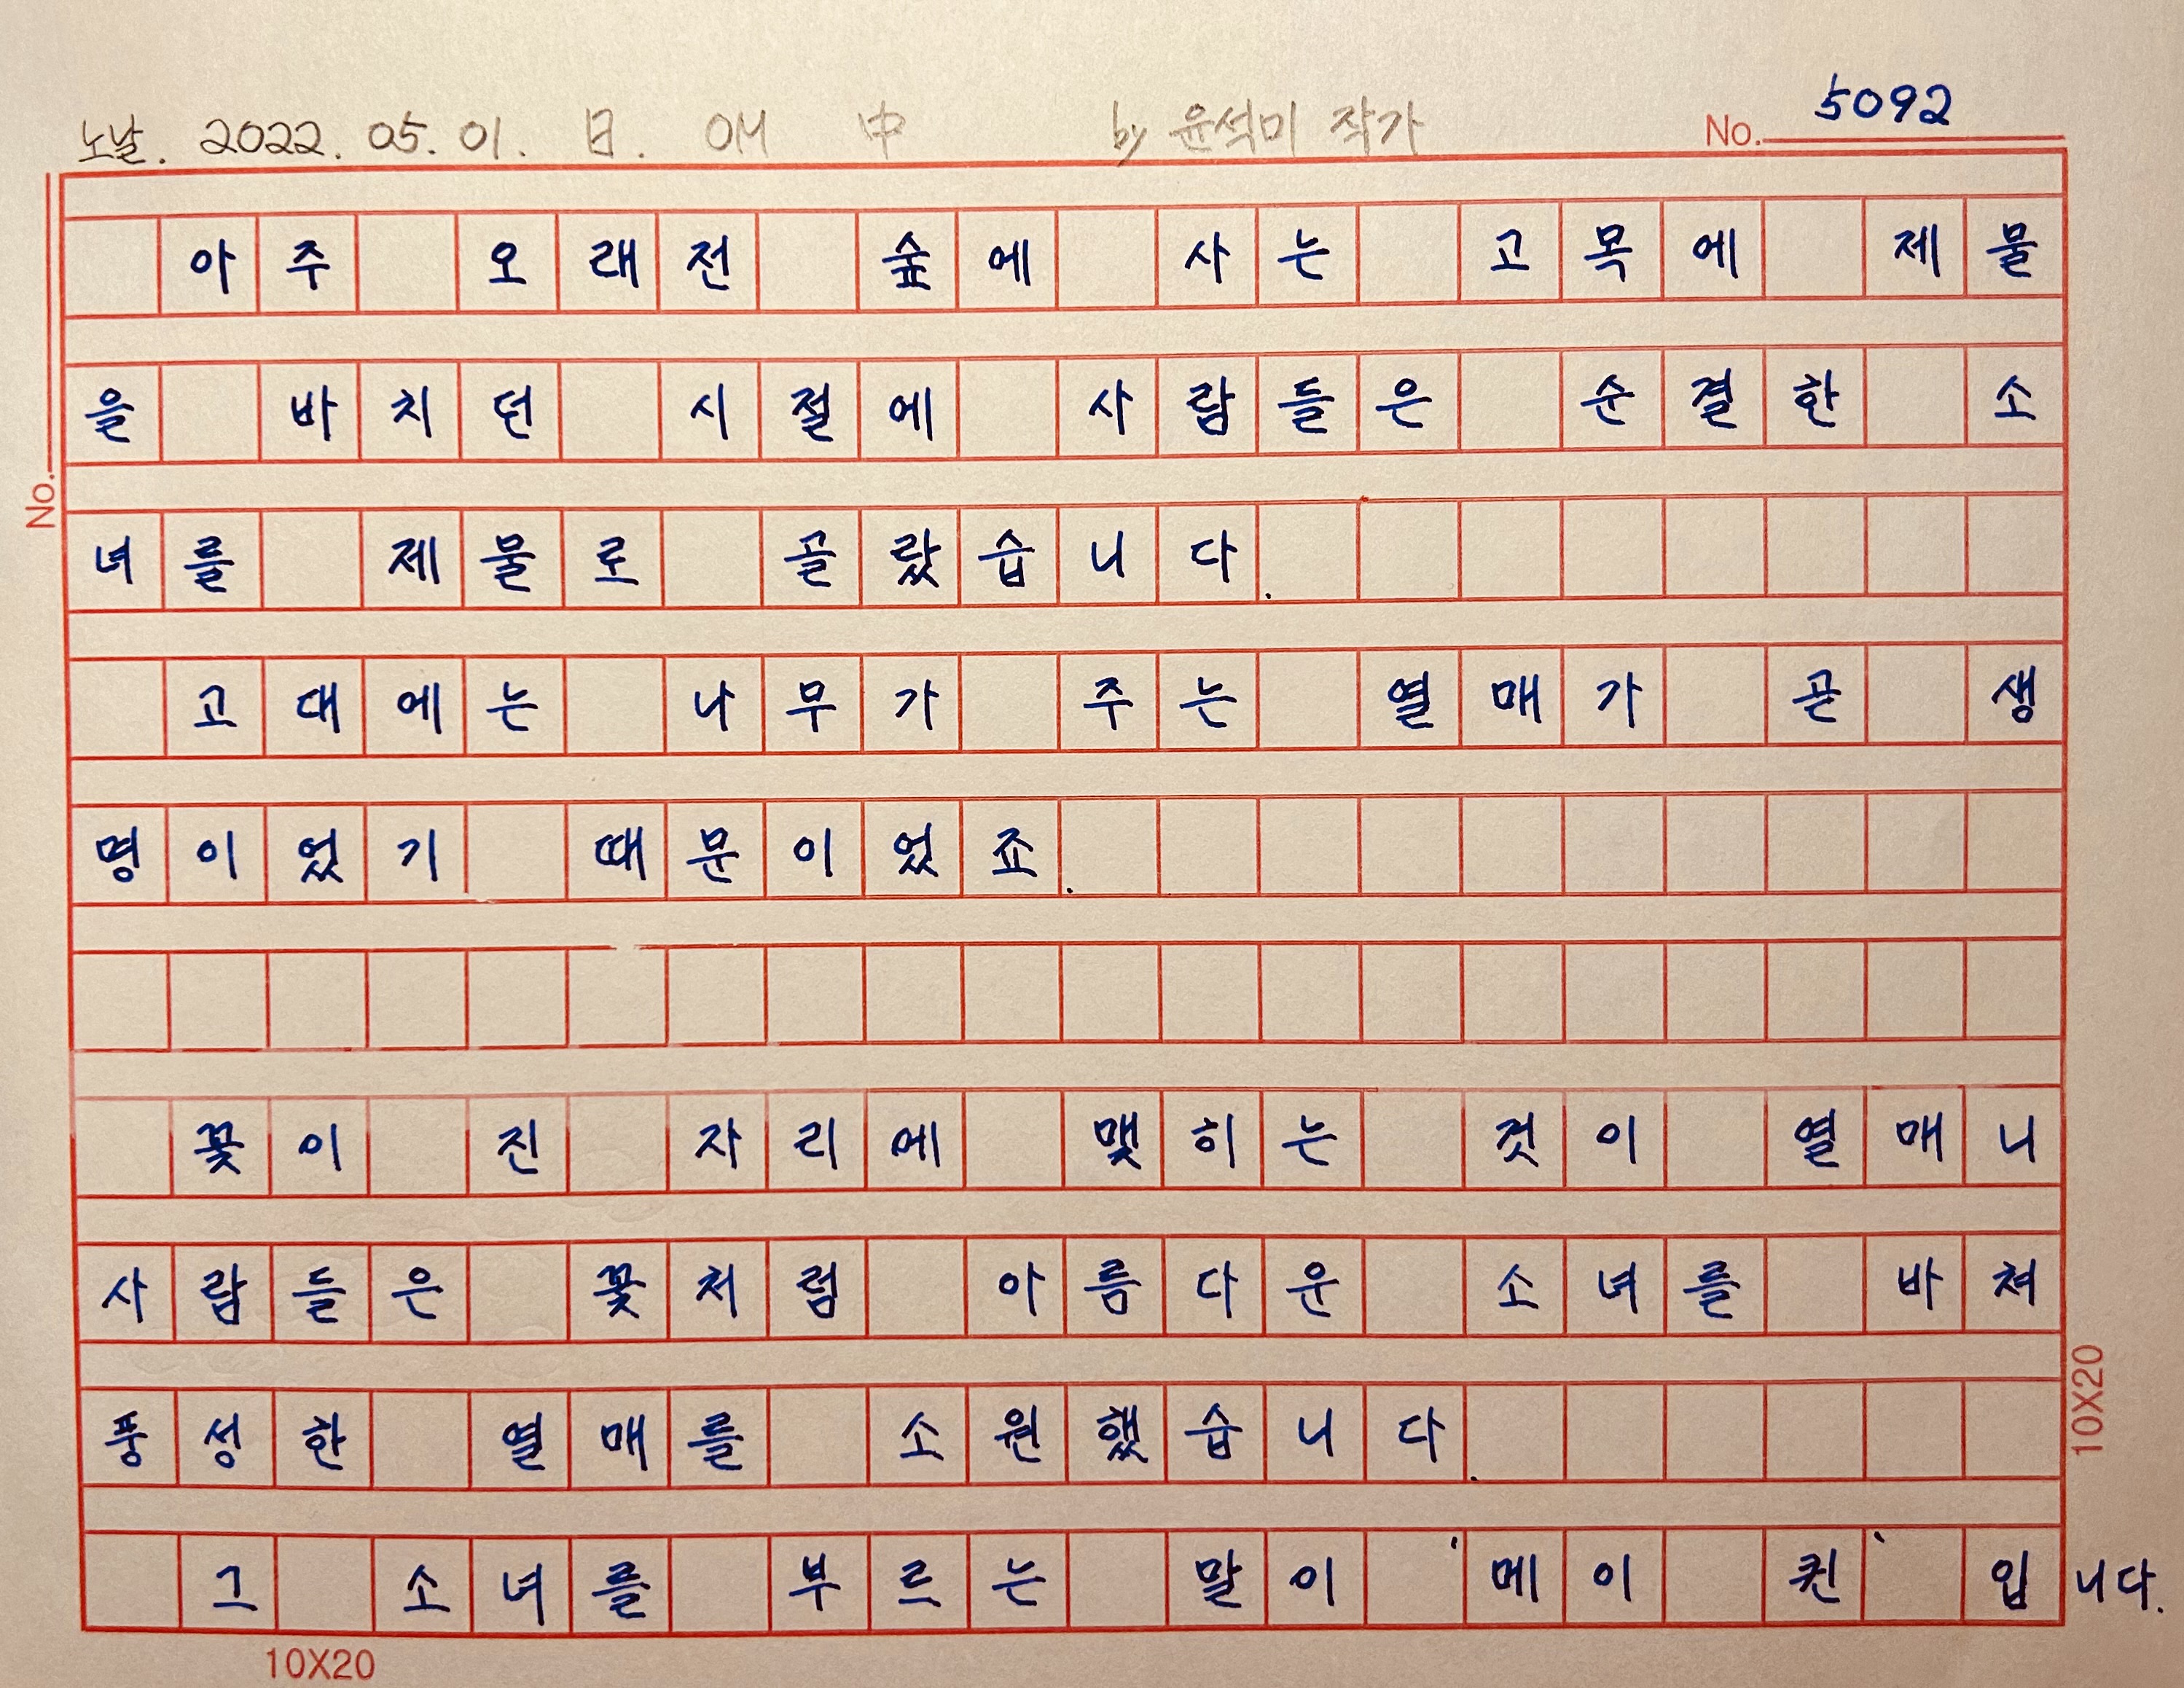 노날. 2022. 05. 01. 日. OM 中 by 윤석미 작가 No. 5092
아주 오래전 숲에 사는 고목에 제물
을 바치던 시절에 사람들은 순결한 소
No.
녀를 제물로 골랐습니다.
고대에는 나무가 주는 열매가 곧 생
명이었기 때문이었죠.
꽃이 진 자리에 맺히는 것이 열매니
사람들은 꽃처럼 아름다운 소녀를 바쳐
풍성한 열매를 소원했습니다.
10X20
그 소녀를 부르는 말이 '메이 퀸' 입니다.
10X20